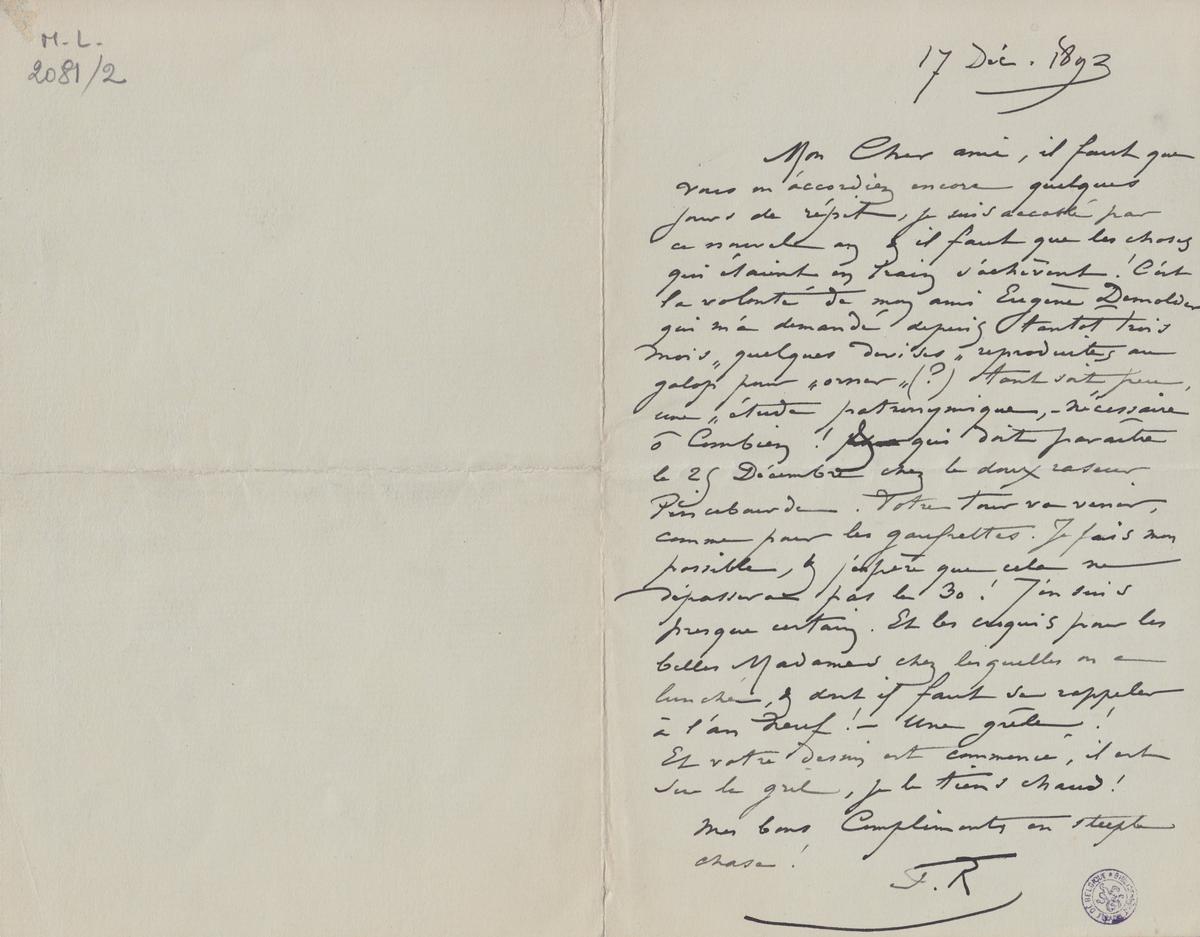 M.-L.
2081/2
17 Déc. 1893
Mon Cher ami, il faut que
vous m'accordiez encore quelques
jours de répit, je suis accablé par
ce nouvel an & il faut que les choses
qui étaient en train s'achèvent ! C'est
la volonté de mon ami Eugène Demolder
qui m'a demandé depuis tantôt trois
mois „ quelques devises „ reproduites au
galop pour „ orner „ (?) tant soit peu,
une „ étude patronymique, - nécessaire
ô Combien ! qui doit paraître
le 25 Décembre chez le doux raseur
Pincebourde. Votre tour va venir,
comme pour les gaufrettes. Je fais mon
possible, & j'espère que cela ne
dépassera pas le 30 ! J'en suis
presque certain. Et les croquis pour les
belles Madames chez lesquelles on a
lunché, & dont il faut se rappeler
à l'an neuf ! - Une grêle !
Et votre dessin est commencé, il est
sur le gril, je le tiens chaud !
Mes bons Compliments en steeple
chase !
F. R